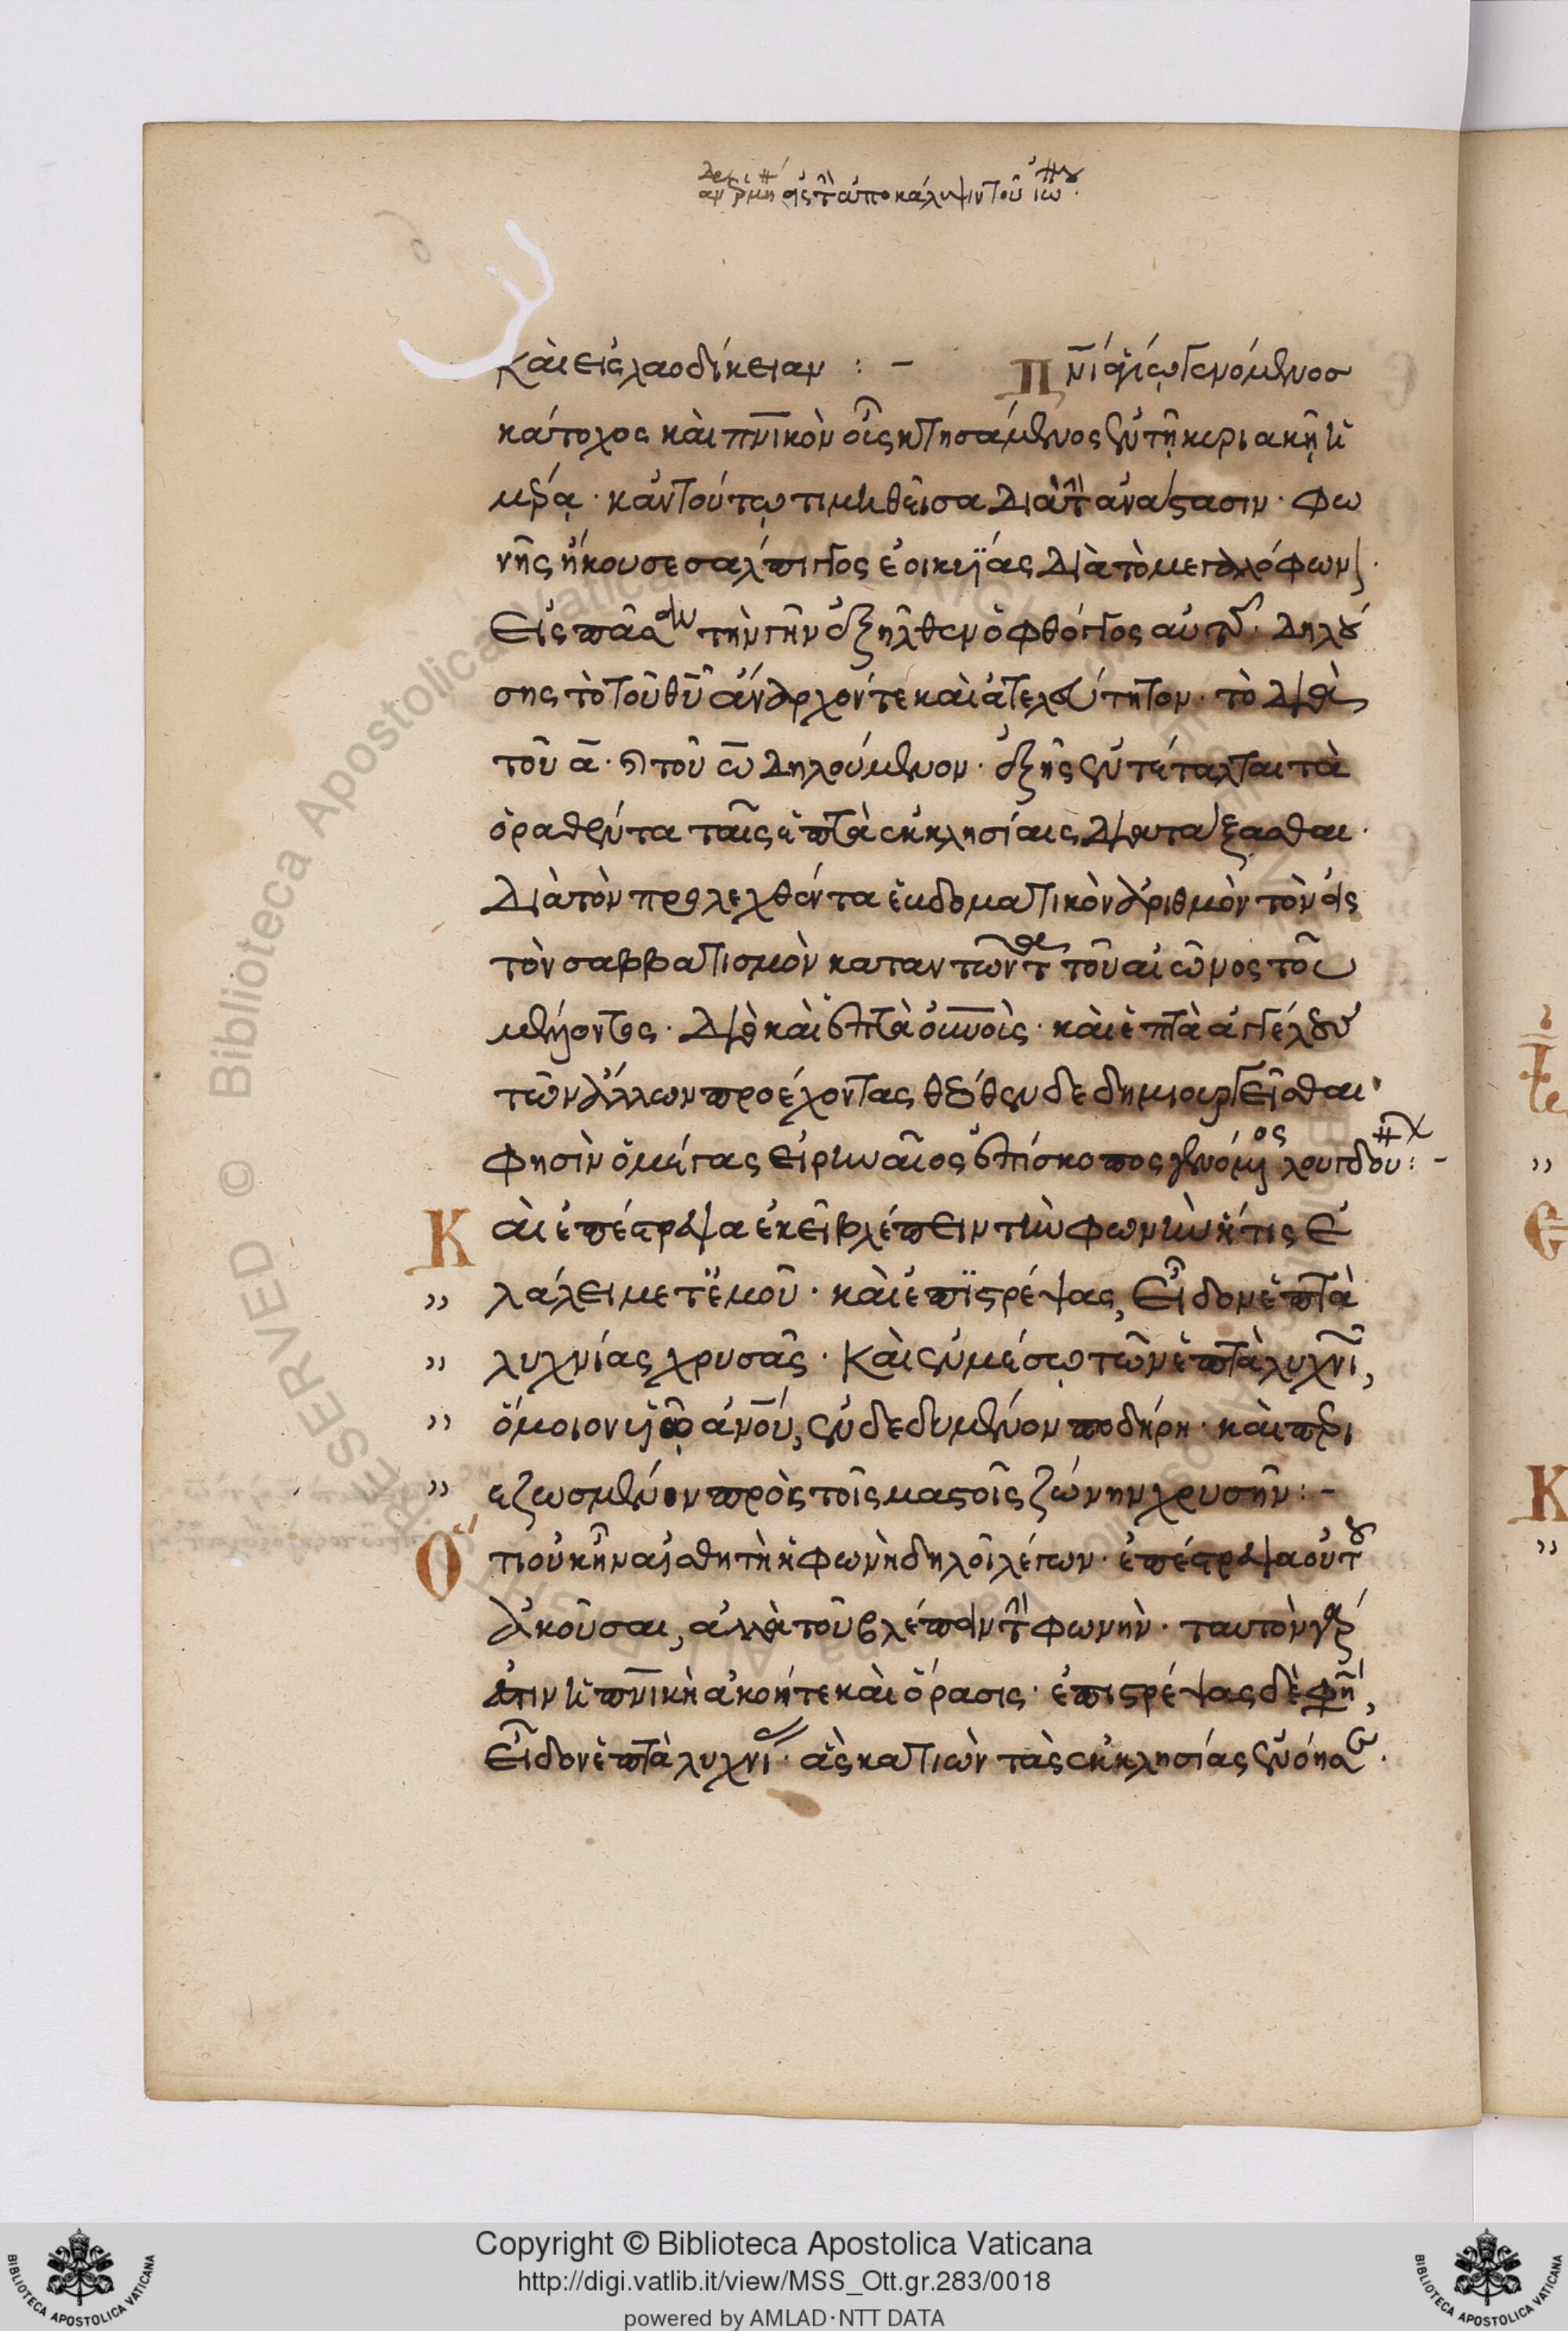 εἰς τ ἀποκάλυψιν τοῦ ἰω
Καὶ εἰς λαοδίκειαν : – Πνι ἁγίω γενόμενος
κάτοχος καὶ πνικὸν οὖς κτησάμενος ἐν τῇ κυριακῇ ἡ
μρα · κἀν τούτω τιμηθεῖσα διὰ τ ἀνάστασιν · φω
νῆς ἤκουσε σάλπιγγος ἐοικυίας διὰ τὸ μεγαλόφων
Εἰς πᾶσαν τὴν γῆν ἐξῆλθεν ὁ φθόγγος αὐτ · δηλού
σης τὸ τοῦ θυ ἄναρχόν τε καὶ ἀτελεύτητον · τὸ διὰ
τοῦ α · καὶ τοῦ ω δηλούμενον · ἐξ ἧς ἐντέταλται τὰ
ὁραθέντα ταῖς ἑπτὰ ἐκκλησίαις διατάξασθαι ·
Διὰ τὸν προλεχθέντα ἑβδοματικὸν ἀριθμὸν τὸν εἰς
τὸν σαββατισμὸν καταντῶντα τοῦ αἰῶνος τοῦ
μένοντος · διὸ καὶ ἑπτὰ οὐνοὶς · καὶ ἑπτὰ ἀγγέλου
τῶν ἄλλων προέχοντας θόθεν δεδημιουργεῖσθαι
φησὶν ὁ μέγας εἰρηναῖος ἐπίσκοπος γενόμος λουγδου : –
Καὶ ἐπέστρεψα ἐκεῖ βλέπειν τὴν φωνὴν ἥτις ἐ
λάλει μετ ἐμοῦ · καὶ ἐπιστρέψας, εἶδον ἑπτὰ
λυχνίας χρυσᾶς · Καὶ ἐν μέσω τῶν ἑπτὰ λυχνι,
ὅμοιον υἱῶ ἀνου, ἐνδεδυμένον ποδήρη · καὶ περι
εζωσμένον πρὸς τοῖς μαστοῖς ζώνην χρυσῆν : –
Ὅτι οὐκ ἦν αἰσθητὴ ἡ φωνὴ δηλοῖ λέγων · ἐπέστρεψα οὐ τ
ἀκοῦσαι, ἀλλὰ τοῦ βλέπειν τ φωνὴν · ταυτὸν γὰρ
ἐστιν ἡ πνικὴ ἀκοή τε καὶ ὅρασις · ἐπιστρέψας δὲ φη,
Εἶδον ἑπτὰ λυχνι · ἃς κατιὼν τὰς ἐκκλησίας ἐνόησε.
Biblioteca Apostolica Vaticana
RESERVED ©
Copyright © Biblioteca Apostolica Vaticana
http://digi.vatlib.it/view/MSS_Ott.gr.283/0018
powered by AMLAD·NTT DATA
BIBLIOTECA APOSTOLICA VATICANA
BIBLIOTECA APOSTOLICA VATICANA